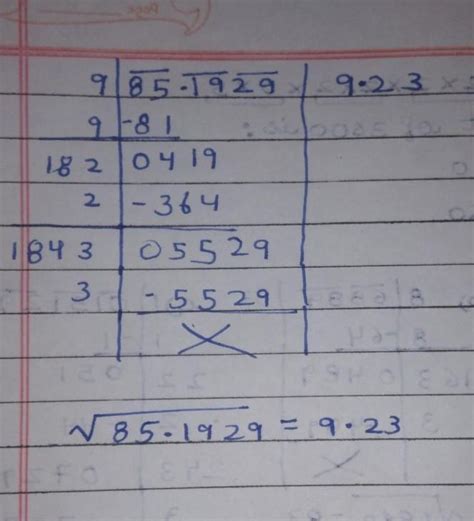 9 85.1929 9.23
9 -81
182 0419
2 -364
1843 05529
3 -5529
X
√85.1929 = 9.23